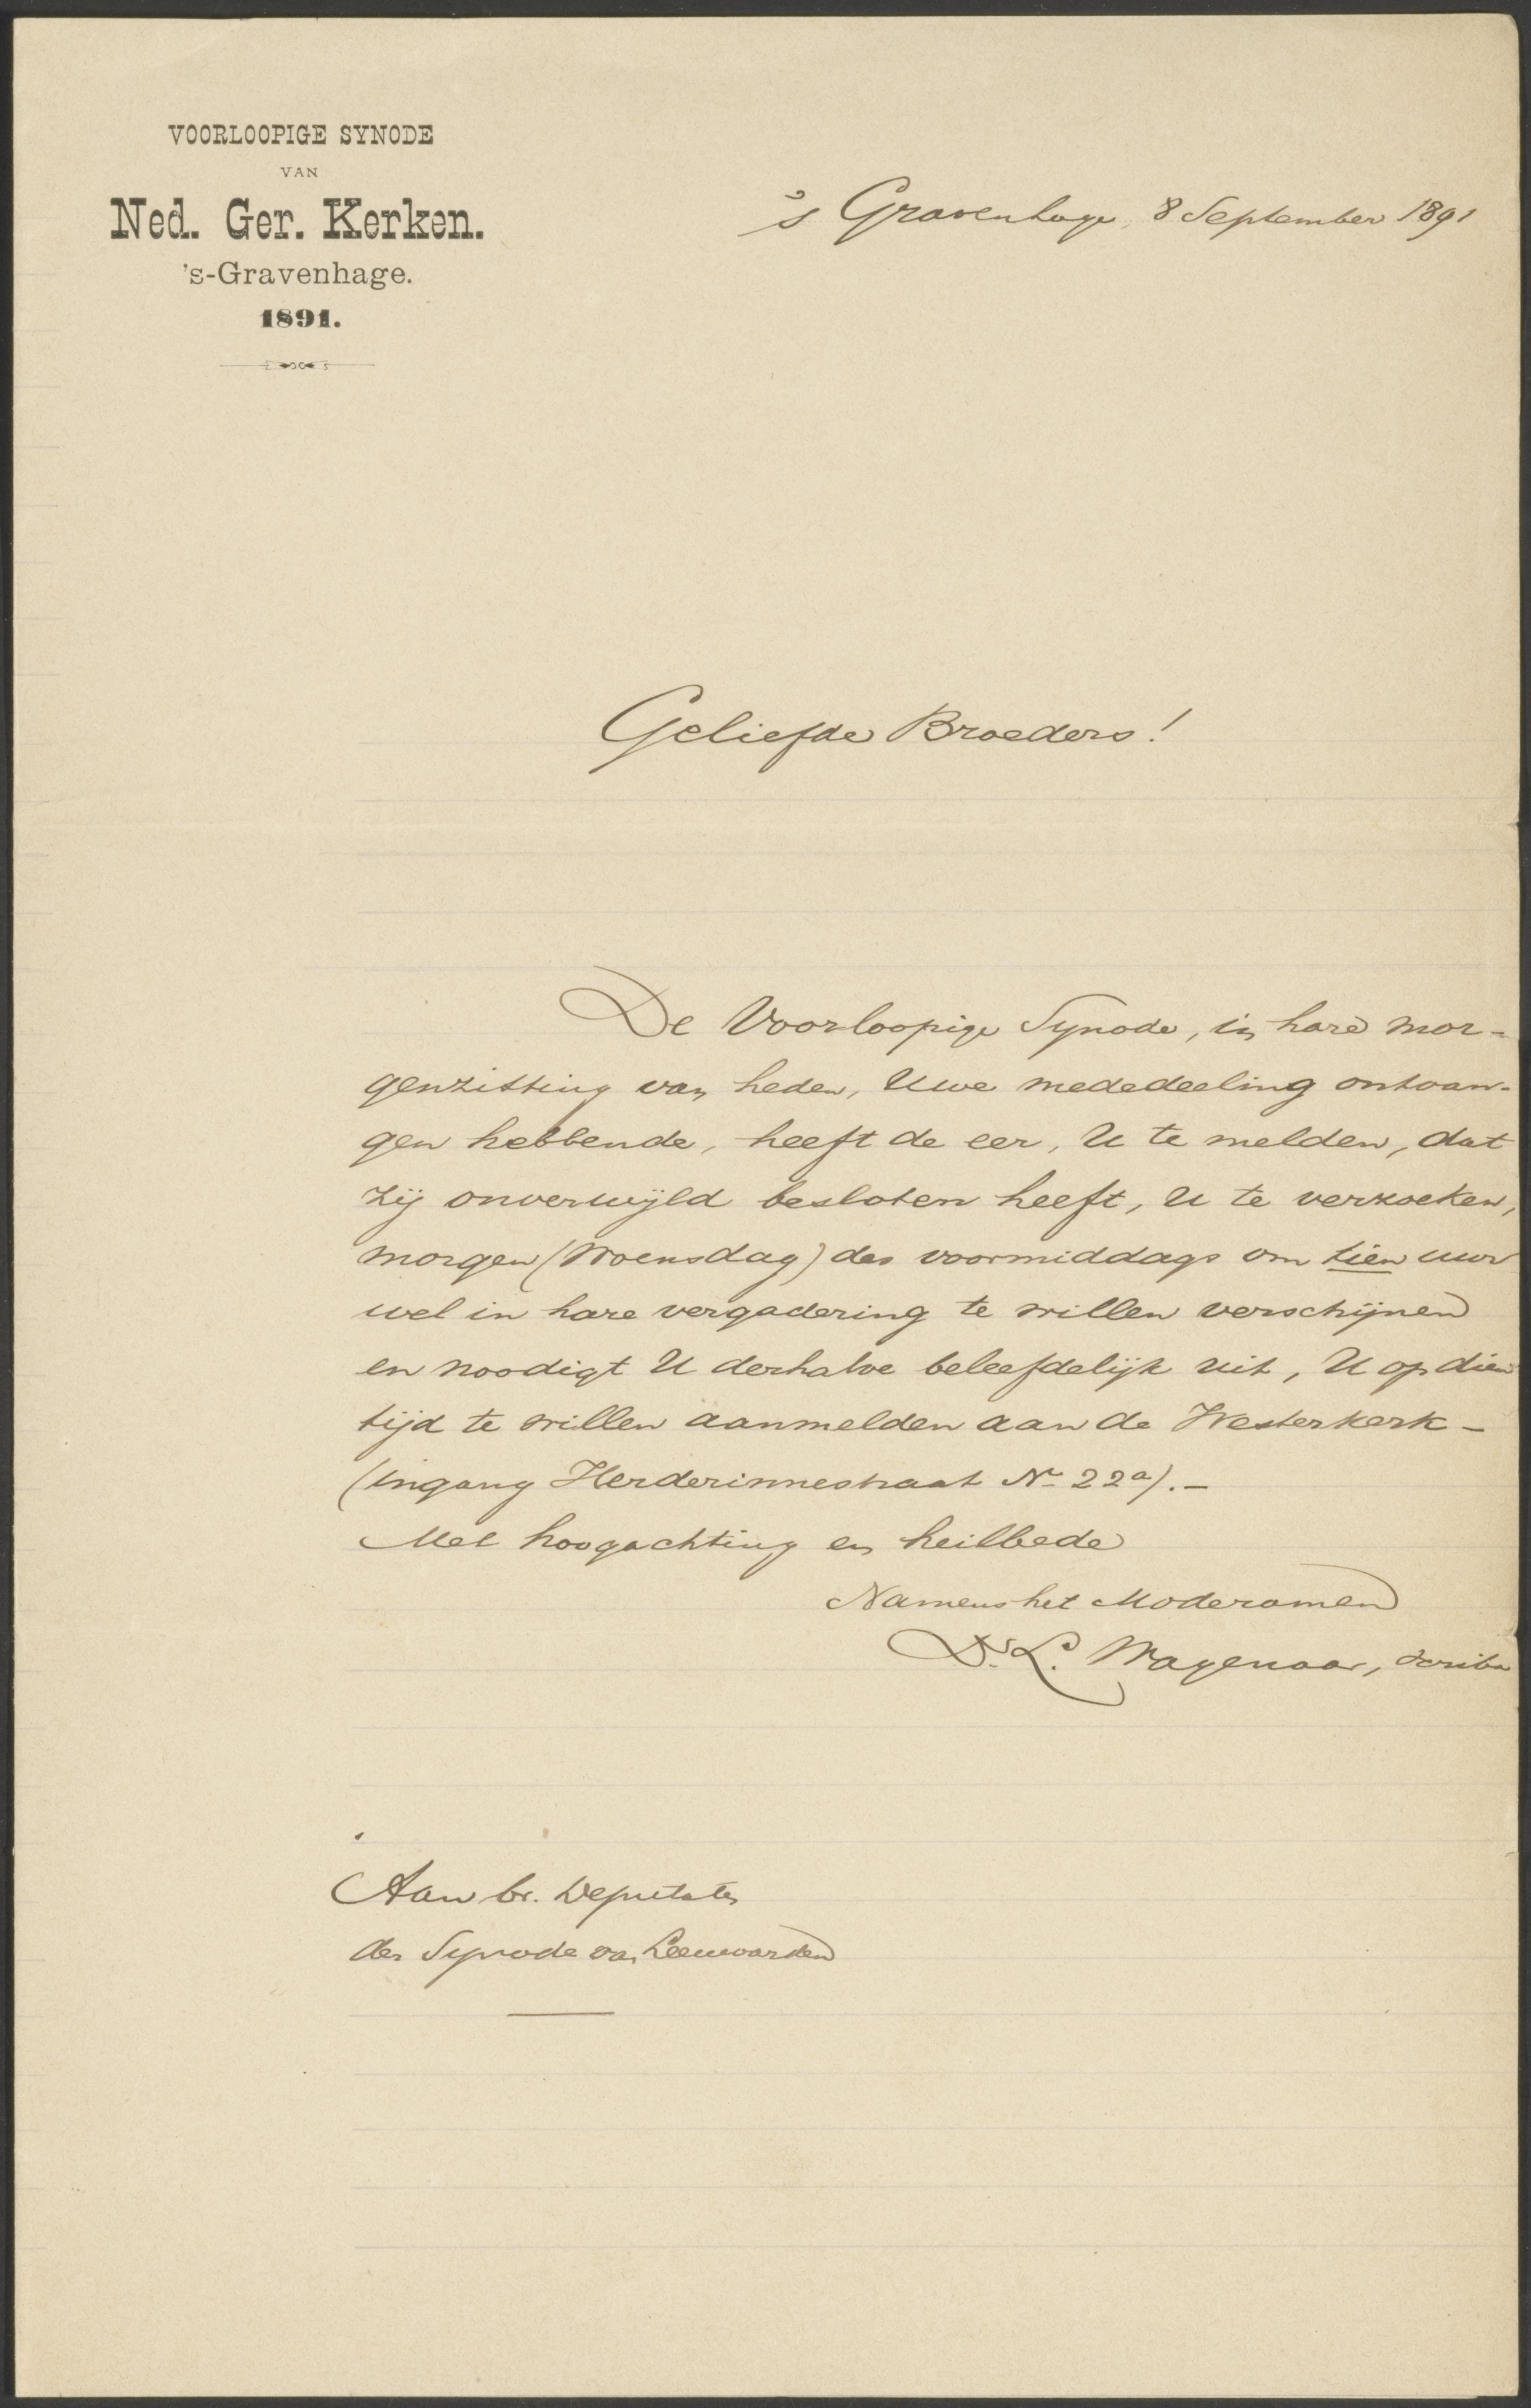 VOORLOOPIGE SYNODE
VAN
Ned. Ger. Kerken.
's-Gravenhage.
1891.
's Gravenhage, 8 September 1891
Geliefde Broeders!
De Voorloopige Synode, in hare mor-
genzitting van heden, Uwe mededeeling ontvan-
gen hebbende, heeft de eer, U te melden, dat
zij onverwijld besloten heeft, U te verzoeken,
morgen (Woensdag) des voormiddags om tien uur
wel in hare vergadering te willen verschijnen
en noodigt U derhalve beleefdelijk uit, U op dien
tijd te willen aanmelden aan de Westerkerk -
(ingang Herderinnestraat No 22a). -
Met hoogachting en heilbede
Namens het Moderamen
Dr. L. Wagenaar, scriba
Aan br. Deputaten
der Synode van Leeuwarden